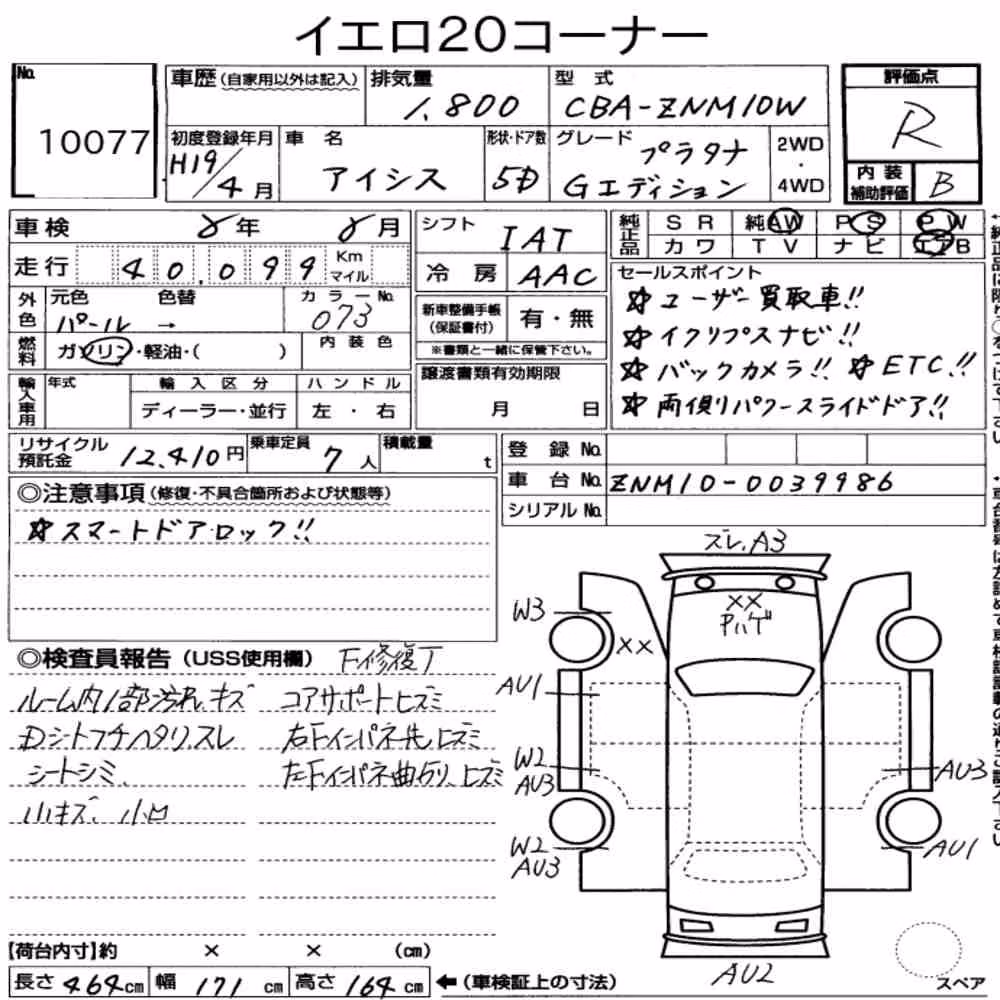 イエロ20コーナー
No. 10077
車歴(自家用以外は記入)
排気量 1,800
型式 CBA-ZNM10W
評価点 R
初度登録年月 H19/4月
車名 アイシス
形状・ドア数 5D
グレード プラタナ Gエディション
2WD・4WD
内装補助評価 B
車検 8年 8月
シフト IAT
純正品 SR 純AW PS PW
カワ TV ナビ エアB
走行 40,099 Km マイル
冷房 AAC
セールスポイント
☆ユーザー買取車!!
☆イクリプスナビ!!
☆バックカメラ!! ☆ETC!!
☆両側リパワースライドドア!!
外色 元色 パール → 色替
カラーNo. 073
新車整備手帳(保証書付) 有・無
※書類と一緒に保管下さい。
燃料 ガソリン・軽油・( )
内装色
譲渡書類有効期限 月 日
輸入車用 年式 輸入区分 ハンドル
ディーラー・並行 左・右
リサイクル預託金 12,410円
乗車定員 7人
積載量 t
登録No.
車台No. ZNM10-0039986
シリアルNo.
◎注意事項(修復・不具合箇所および状態等)
☆スマートドアロック!!
◎検査員報告(USS使用欄) F修復了
ルーム内1部汚れ、キズ
コアサポートヒズミ
Dシートフチヘタリ、スレ
右Fインパネ先ヒズミ
シートシミ、
左Fインパネ曲り、ヒズミ
小キズ、小凹
ズレ、A3
W3
××
××
Pハゲ
AU1
W2
AU3
AU3
W2
AU3
AU1
AU2
スペア
【荷台内寸】約 × × (cm)
長さ 464cm 幅 171cm 高さ 164cm ←(車検証上の寸法)